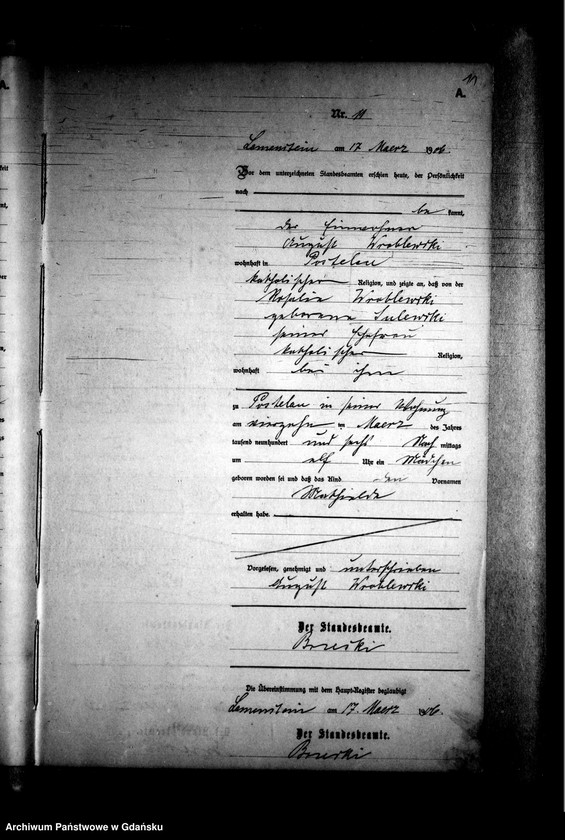 11
A.
A.
Nr. 11
am 17 Maerz 1906.
Vor dem unterzeichneten Standesbeamten erschien heute, der Persönlichkeit
nach
be kannt,
der Einwohner
August Wroblewski
wohnhaft in Postelau
katholischer Religion, und zeigte an, daß von der
Rosalia Wroblewski
geborene Sulewski
seiner Ehefrau
katholischer Religion,
wohnhaft bei ihm
zu Postelau in seiner Wohnung
am vierzehn ten Maerz des Jahres
tausend neunhundert und sechs Nach mittags
um elf Uhr ein Mädchen
geboren worden sei und daß das Kind den Vornamen
Mathielde
erhalten habe.
Vorgelesen, genehmigt und unterschrieben
August Wroblewski
Der Standesbeamte.
Die Übereinstimmung mit dem Haupt-Register beglaubigt
am 17. Maerz 1906.
Der Standesbeamte.
Archiwum Państwowe w Gdańsku